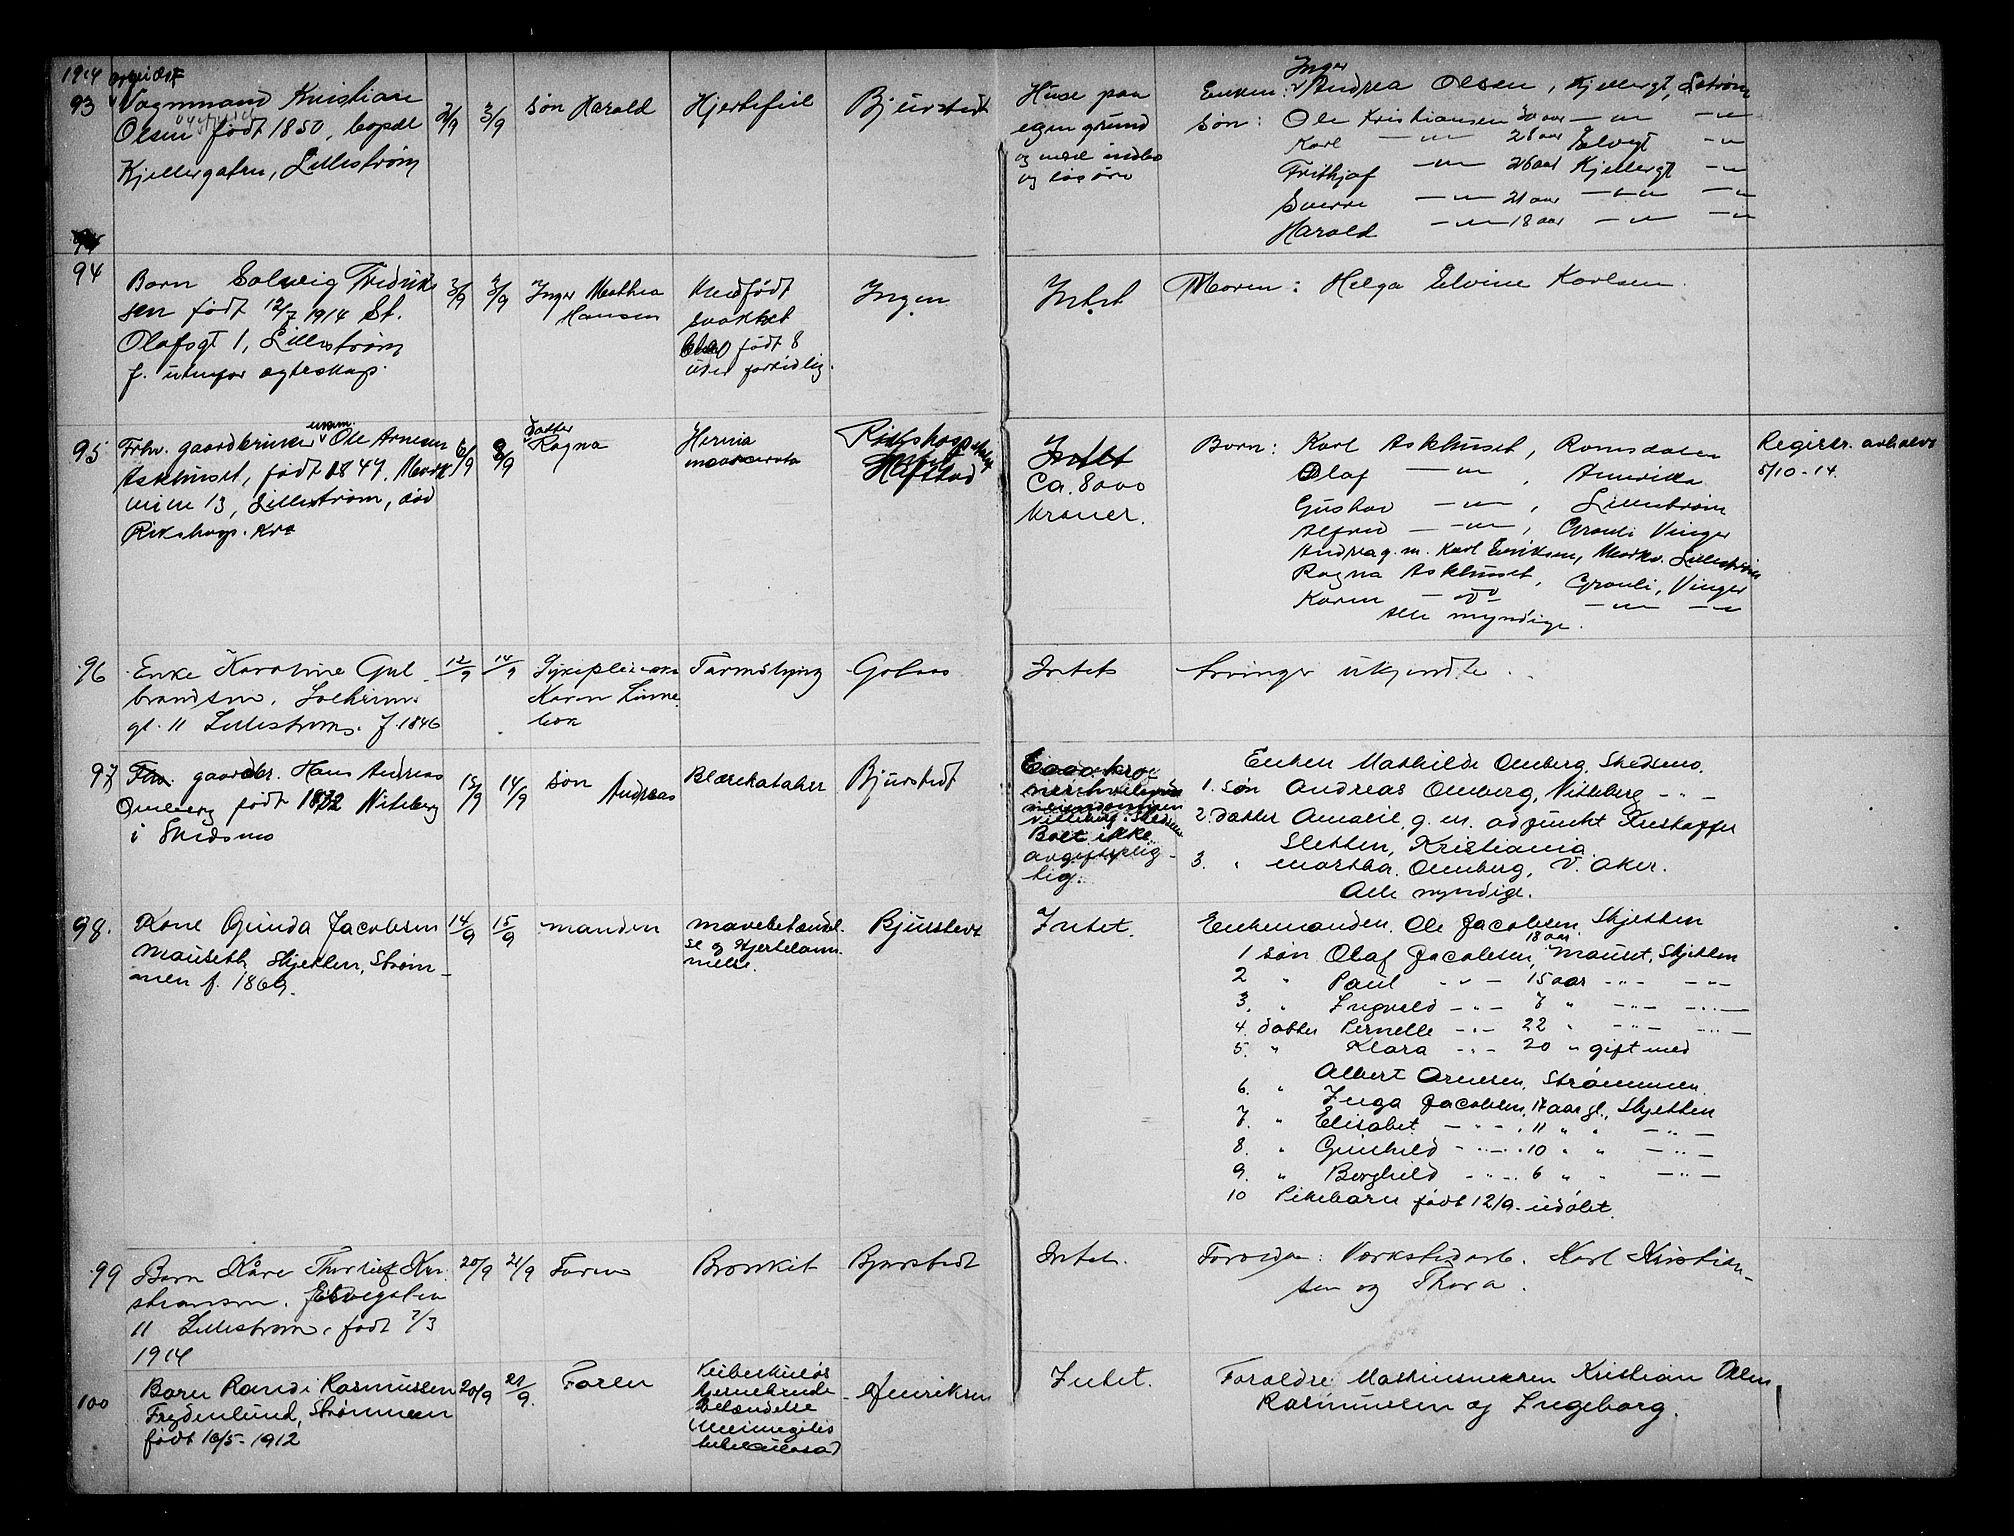 1914
93 Vognmand Kristian
Olsen født 1850, bopæl
Kjellergaten, Lillestrøm
2/9 3/9 søn Harald Hjertefeil Bjurstedt
Huse paa
egen grund
og med indbo
og løsøre
Inger
Enken: Andrea Olsen, Kjellergt, Lstrøm
Søn: Ole Kristiansen 30 aar — " — — " —
Karl — " — 28 aar Elvegt — " —
Frithjof — " — 26 aar Kjellergt — " —
Sverre — " — 21 aar — " — — " —
Harald — " — 18 aar — " — — " —
94 Barn Solveig Fredrik
sen født 12/7 1914 St.
Olafsgt 1, Lillestrøm
f. utenfor egteskap.
3/9 3/9 Inger Mathea
Hansen
Medfødt
svakhet
født 8
uker fortidlig.
Ingen
Intet
Moren: Helga Elvine Karlsen.
95 Frhv. gaardbruker Ole Arnesen
Askhuset, født 1847. Mork
veien 13, Lillestrøm, død
Rikshosp. Kra
6/9 8/9 datter
Ragna
Hernia
Rikshospitalet
Intet
Ca. 8000
kroner.
Børn: Karl Askhuset, Romsdalen
Olaf — " — , Amerika
Gustav — " — , Lillestrøm
Alfred — " — , Granli Vinger
Andrea g. m. Karl Eriksen, Morkv. Lillestrøm
Ragna Askhuset, Granli, Vinger
Karen — " — — " — — " —
Alle myndige.
Registr. avholdt
5/10-14.
96 Enke Karoline Gul
brandsen, Solheims
gt. 11 Lillestrøm. f. 1846
12/9 14/9 Sykepleierske
Karen Linne
bok
Tarmslyng Golaas
Intet Arvinger ukjendte.
97 Fhv. gaardbr. Hans Andreas
Omberg født 1832 Nitteberg
i Skedsmo
13/9 14/9 søn Andreas Blærekatahr Bjurstedt
Boet ikke
avgiftsplig-
tig.
Enken Mathilde Omberg, Skedsmo.
1. Søn Andreas Omberg, Nitteberg - " -
2. datter Amalie g. m. adjunkt Kristoffer
Sletten, Kristiania.
3. " Martha Omberg, V. Aker.
Alle myndige.
98. Kone Gunda Jacobsen
Mauseth Skjetten, Strøm-
men f. 1869.
14/9 15/9 manden mavebetændel-
se og Hjertelam-
melse.
Bjurstedt
Intet.
Enkemanden. Ole Jacobsen, Skjetten
18 aar
1 søn Olaf Jacobsen, Mauset, Skjetten
2 " Paul - " - 15 aar - " - - " -
3. " Ingvald - " - 7 " - " - - " -
4. datter Pernelle - " - 22 " - " - - " -
5. " Klara - " - 20 " gift med
Albert Arnesen, Strømmen.
6. " Inga Jacobsen, 17 aar gl., Skjetten
7. " Elisabet - " - 11 " " - " -
8. " Gunhild - " - 10 " " - " -
9. " Borghild - " - 6 " " - " -
10 Pikebarn født 12/9 - udøbt.
99 Barn Kåre Thorleif Kri
stiansen. Elvegaten
11 Lillestrøm, født 7/3
1914
20/9 21/9 Faren Bronkit Bjurstedt
Intet.
Forældre: Verkstedarb. Karl Kristian-
sen og Thora.
100 Barn Randi Rasmussen
Frydenlund, Strømmen
født 10/5-1912
20/9 21/9. Faren Tuberkuløs
hjernehinde
betændelse
Henriksen
Intet.
Foreldre Maskinsmeden Kristian Olen
Rasmussen og Ingeborg.